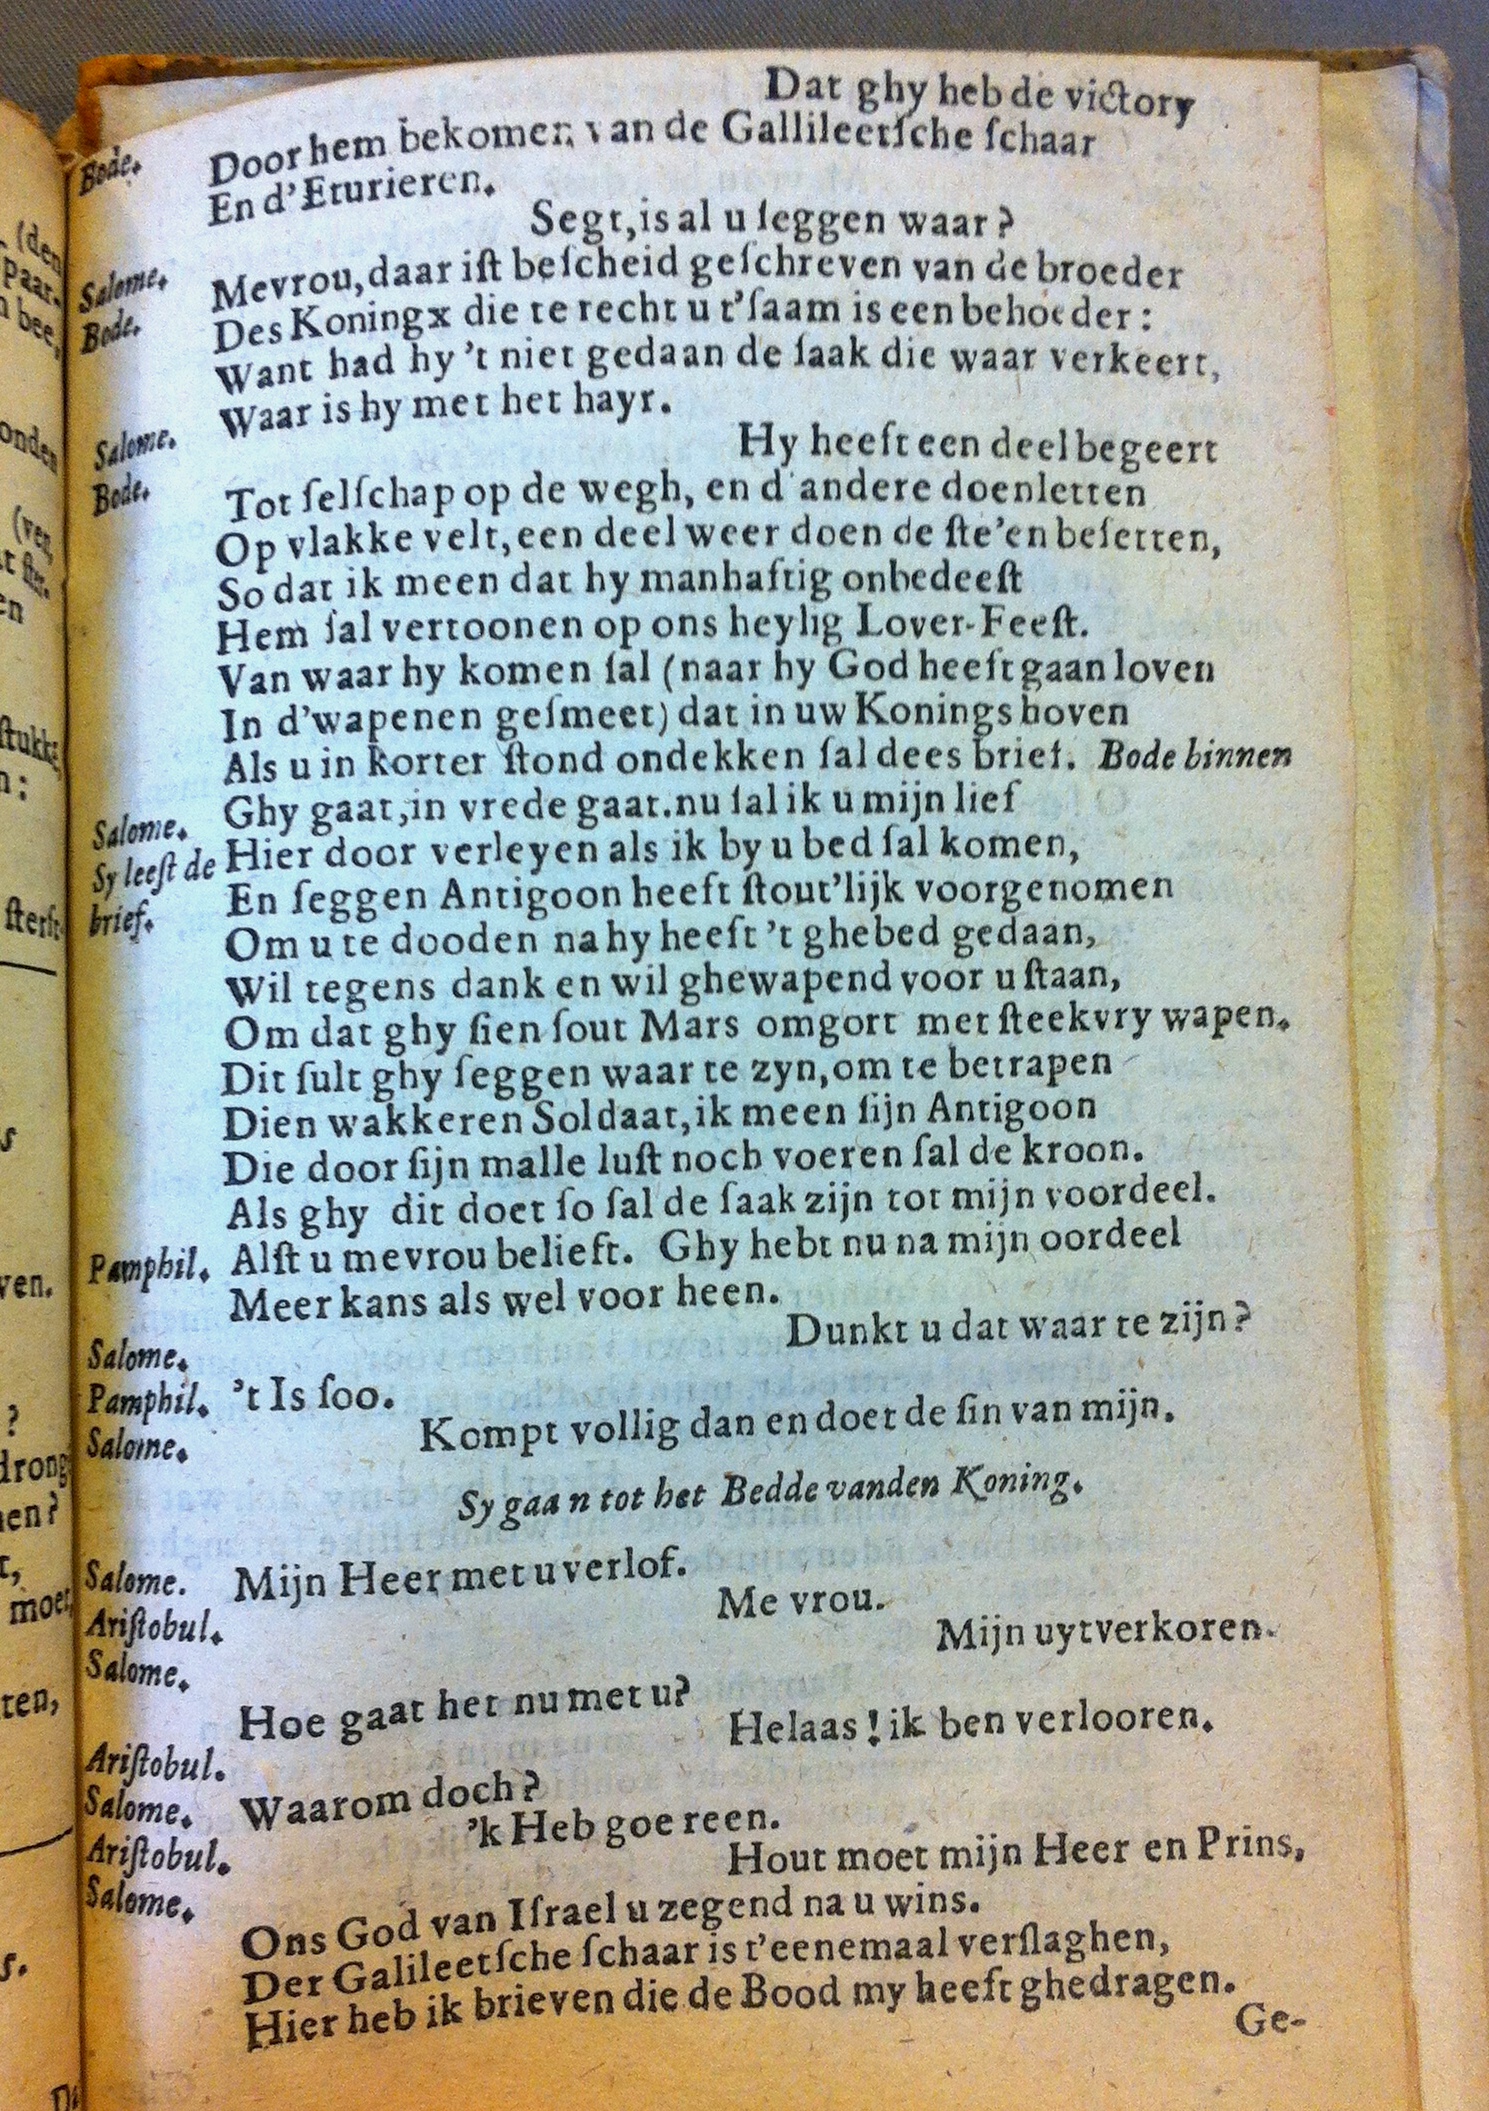 Bode. Dat ghy heb de victory
Door hem bekomen van de Gallileetſche ſchaar
En d'Eturieren.
Salome. Segt, is al u ſeggen waar?
Bode. Mevrou, daar iſt beſcheid geſchreven van de broeder
Des Koningx die te recht u t'ſaam is een behoeder:
Want had hy 't niet gedaan de ſaak die waar verkeert,
Salome. Waar is hy met het hayr.
Bode. Hy heeft een deel begeert
Tot ſelſchap op de wegh, en d'andere doen letten
Op vlakke velt, een deel weer doen de ſte'en beſetten,
So dat ik meen dat hy manhaftig onbedeeſt
Hem ſal vertoonen op ons heylig Lover-Feeſt.
Van waar hy komen ſal (naar hy God heeft gaan loven
In d'wapenen geſmeet) dat in uw Konings hoven
Als u in korter ſtond ondekken ſal dees brief. Bode binnen
Salome. Ghy gaat, in vrede gaat. nu ſal ik u mijn lief
Sy leeſt de Hier door verleyen als ik by u bed ſal komen,
brief. En ſeggen Antigoon heeft ſtout'lijk voorgenomen
Om u te dooden na hy heeft 't ghebed gedaan,
Wil tegens dank en wil ghewapend voor u ſtaan,
Om dat ghy ſien ſout Mars omgort met ſteekvry wapen.
Dit ſult ghy ſeggen waar te zyn, om te betrapen
Dien wakkeren Soldaat, ik meen ſijn Antigoon
Die door ſijn malle luſt noch voeren ſal de kroon.
Als ghy dit doet ſo ſal de ſaak zijn tot mijn voordeel.
Pamphil. Alſt u mevrou belieft. Ghy hebt nu na mijn oordeel
Meer kans als wel voor heen.
Salome. Dunkt u dat waar te zijn?
Pamphil. 't Is ſoo.
Salome. Kompt vollig dan en doet de ſin van mijn.
Sy gaan tot het Bedde vanden Koning.
Salome. Mijn Heer met u verlof.
Ariſtobul. Me vrou.
Salome. Mijn uytverkoren.
Hoe gaat het nu met u?
Ariſtobul. Helaas! ik ben verlooren.
Salome. Waarom doch?
Ariſtobul. 'k Heb goe reen.
Salome. Hout moet mijn Heer en Prins,
Ons God van Iſrael u zegend na u wins.
Der Galileetſche ſchaar is t'eenemaal verſlaghen,
Hier heb ik brieven die de Bood my heeft ghedragen.
Ge-